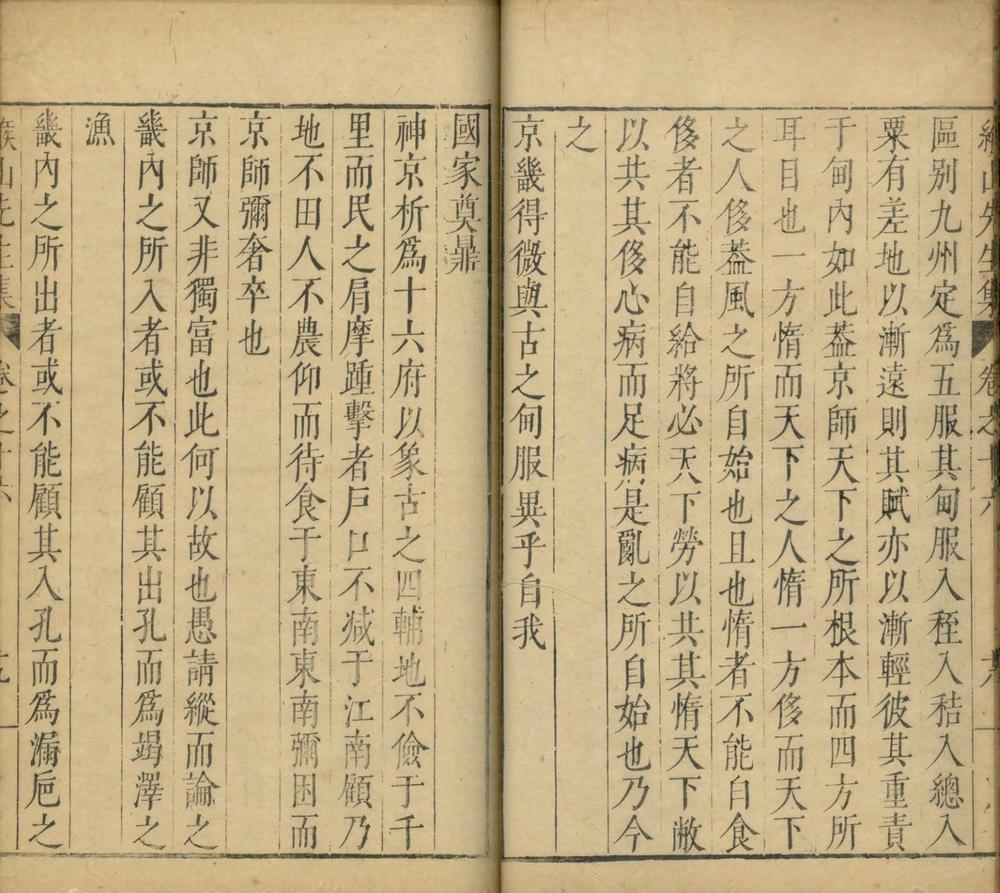 緱山先生集 卷之十六
區别九州定爲五服其甸服入秷入秸入總入
粟有差地以漸遠則其賦亦以漸輕彼其重責
于甸內如此葢京師天下之所根本而四方所
耳目也一方惰而天下之人惰一方侈而天下
之人侈葢風之所自始也且也惰者不能自食
侈者不能自給將必天下勞以共其惰天下敝
以共其侈心病而足病是亂之所自始也乃今
之
京畿得微與古之甸服異乎自我
國家奠鼎
神京析爲十六府以象古之四輔地不儉于千
里而民之肩摩踵擊者戶口不减于江南顧乃
地不田人不農仰而待食于東南東南彌困而
京師彌奢卒也
京師又非獨富也此何以故也愚請縱而論之
畿內之所入者或不能顧其出孔而爲竭澤之
漁
畿內之所出者或不能顧其入孔而爲漏巵之
緱山先生集 卷之十六